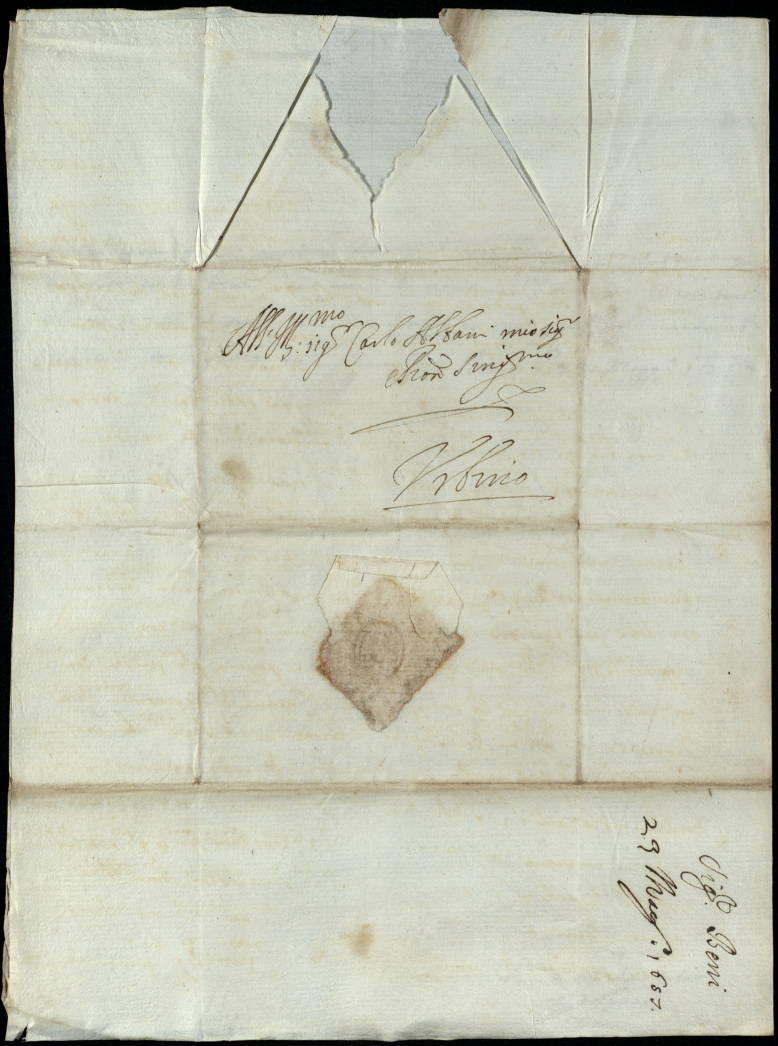 All' Ill:mo sigr Carlo Albani mio sigr
Pron Singmo
Vrbino
Sigr. Beni
29 Mag. 1687.